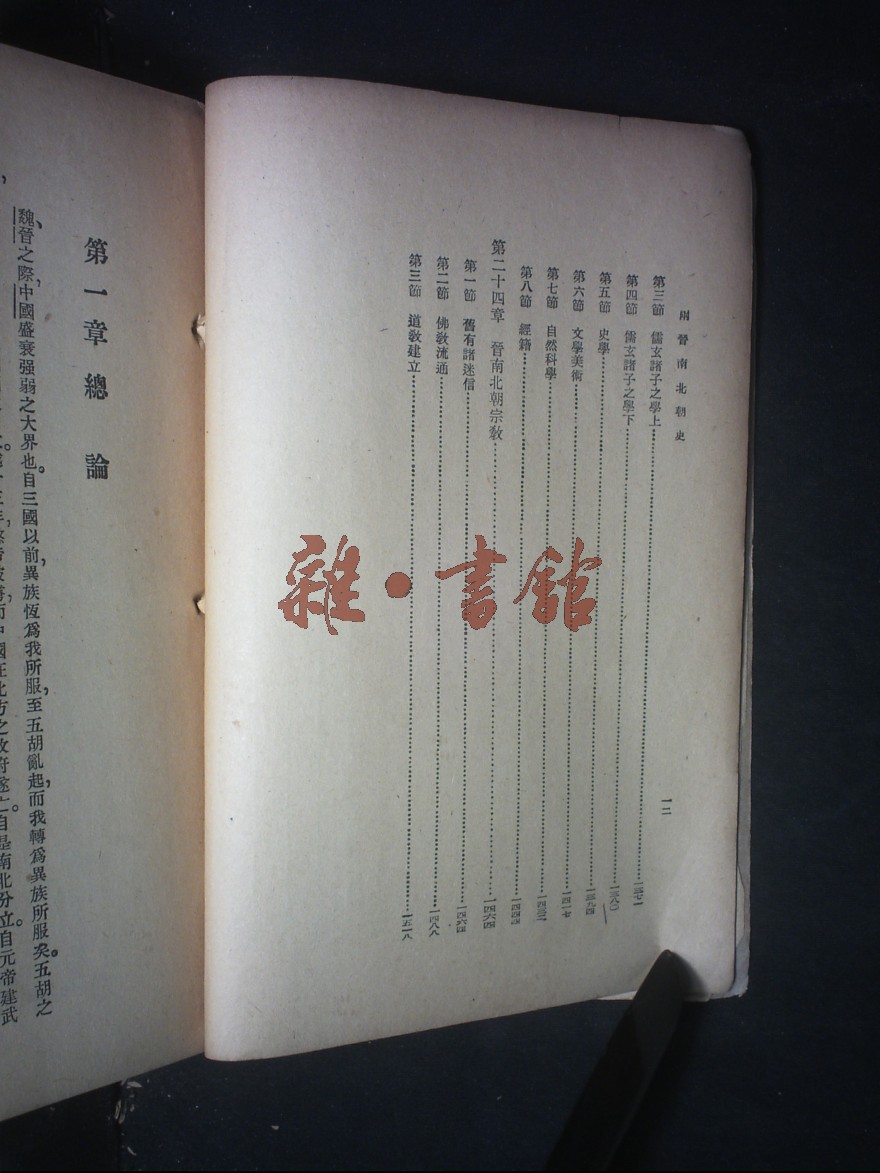 兩晉南北朝史
一二
第三節 儒玄諸子之學上 一三七一
第四節 儒玄諸子之學下
第五節 史學 一三九四
第六節 文學美術 一四一七
第七節 自然科學
第八節 經籍
第二十四章 晉南北朝宗教 一四六四
第一節 舊有諸迷信 一四六四
第二節 佛教流通 一四八八
第三節 道教建立 一五一八
雜·書館
第一章 總論
魏晉之際,中國盛衰强弱之大界也。自三國以前,異族恆爲我所服,至五胡亂起,而我轉爲異族所服矣。五胡之
國在北方之政府遂亡。自是南北分立。自元帝建武